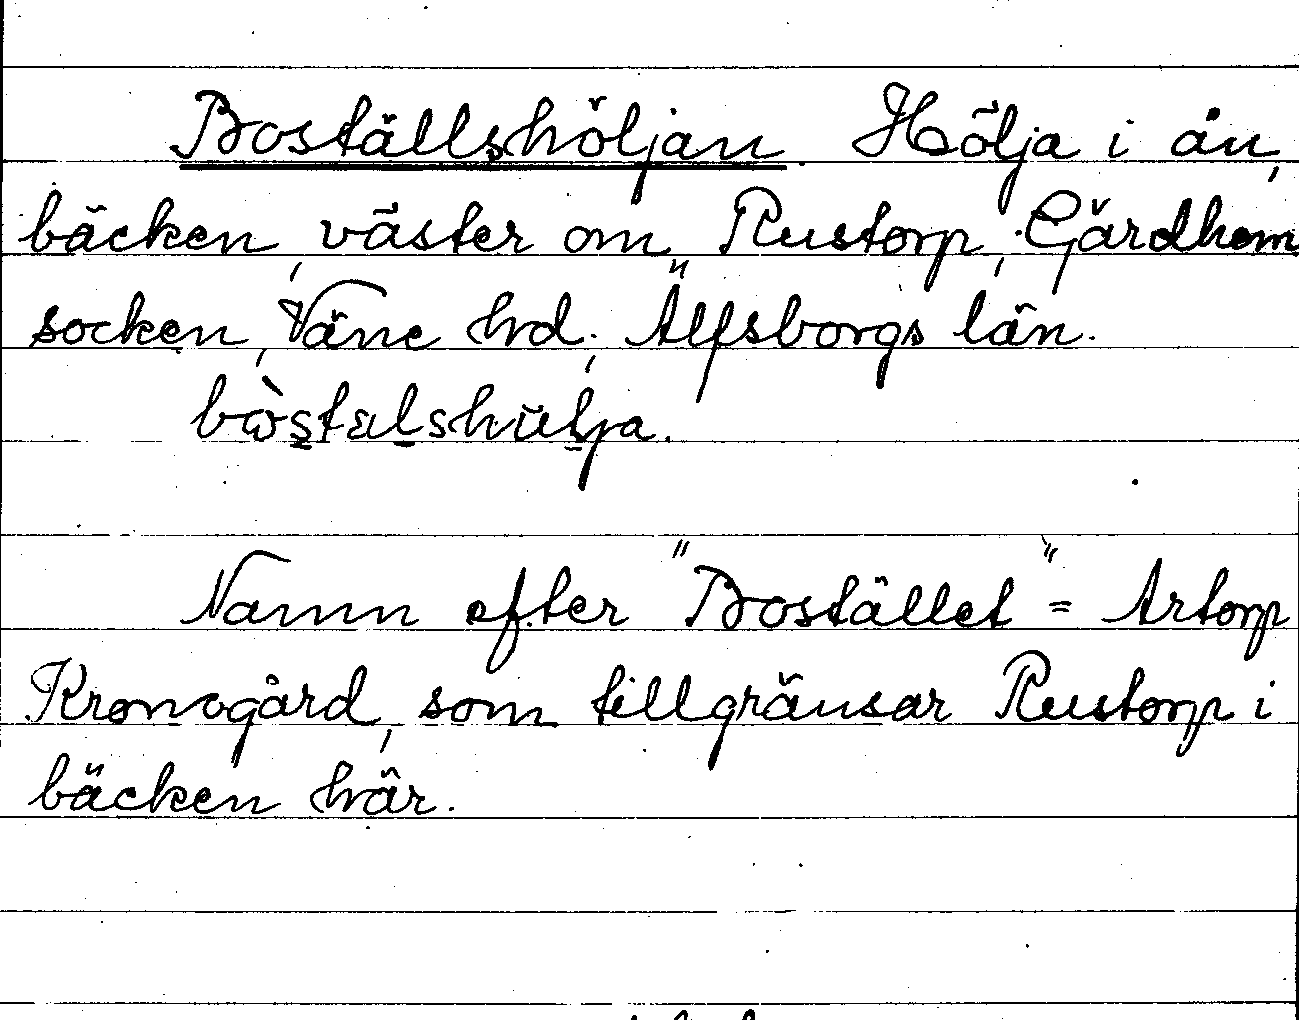 Boställshöljan. Hölja i ån,
bäcken, väster om Rustorp, Gärdhem
socken, Väne hd, Älfsborgs län.

Namn efter "Bostället" = Artorp
Kronogård, som tillgränsar Rustorp i
bäcken här.